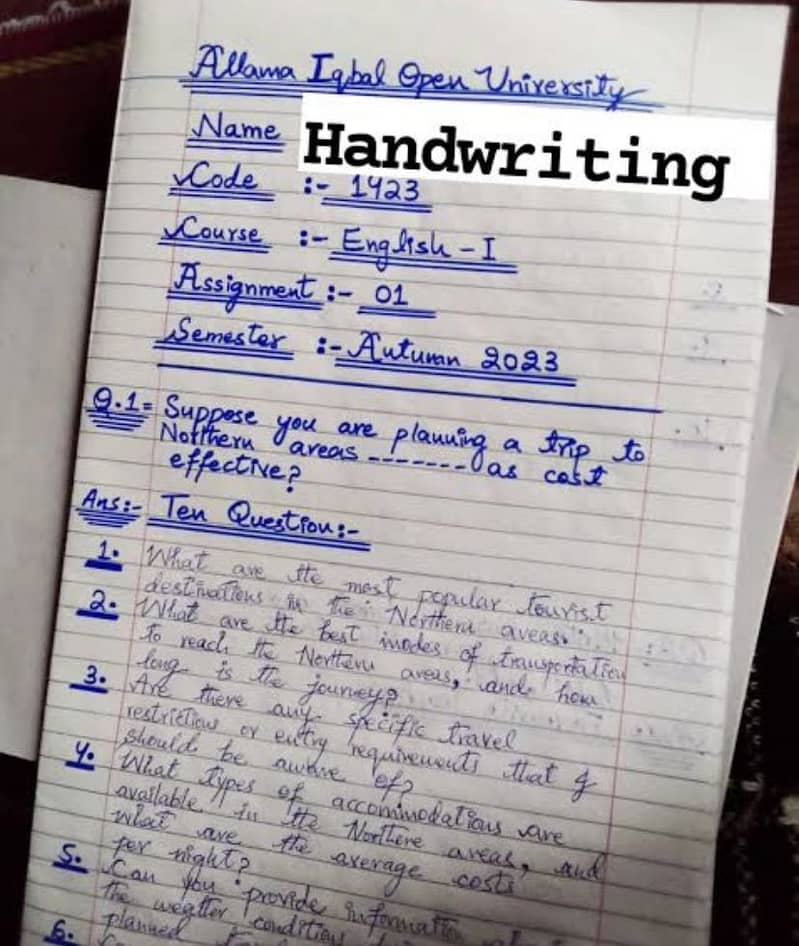 Allama Iqbal Open University
Name Handwriting
Code :- 1423
Course :- English - I
Assignment :- 01
Semester :- Autumn 2023
Q.1= Suppose you are planning a trip to
Northern areas ------- as cost
effective?
Ans:- Ten Question:-
1. What are the most popular tourist
destinations in the Northern areas.
2. What are the best modes of transportation
to reach the Northern areas, and how
long is the journey?
3. Are there any specific travel
restrictions or entry requirements that I
should be aware of?
4. What types of accommodations are
available in the Northern areas, and
what are the average costs
per night?
5. Can you provide information
the weather conditions
6. planned